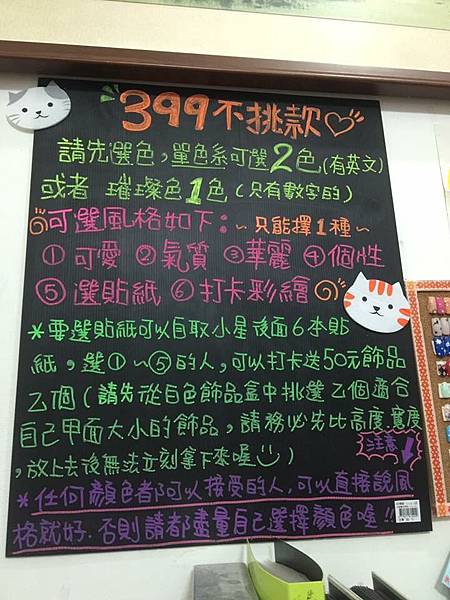 399不挑款
請先選色，單色系可選2色(有英文)
或者 璀璨色1色(只有數字的)
可選風格如下：~只能擇1種~
①可愛 ②氣質 ③華麗 ④個性
⑤選貼紙 ⑥打卡彩繪
*要選貼紙可以自取小星後面6本貼
紙，選①~⑤的人，可以打卡送50元飾品
乙個(請先從白色飾品盒中挑選乙個適合
自己甲面大小的飾品，請務必先比高度寬度
，放上去後無法立刻拿下來喔)
注意
*任何顏色都可以接受的人，可以直接說風
格就好．否則請都盡量自己選擇顏色唯!!